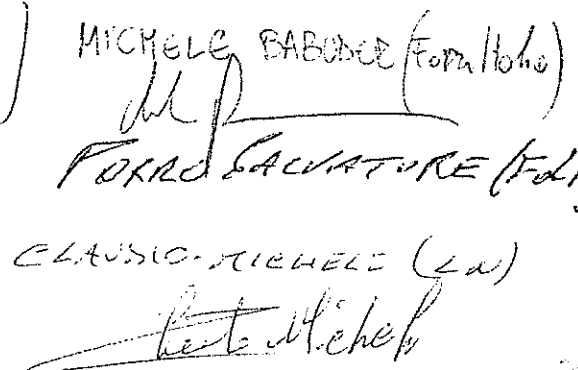 MICHELE BABUDER (Forza Italia)
PORRO SALVATORE (FdI
CLAUDIO MICHELE (LN)
Michel